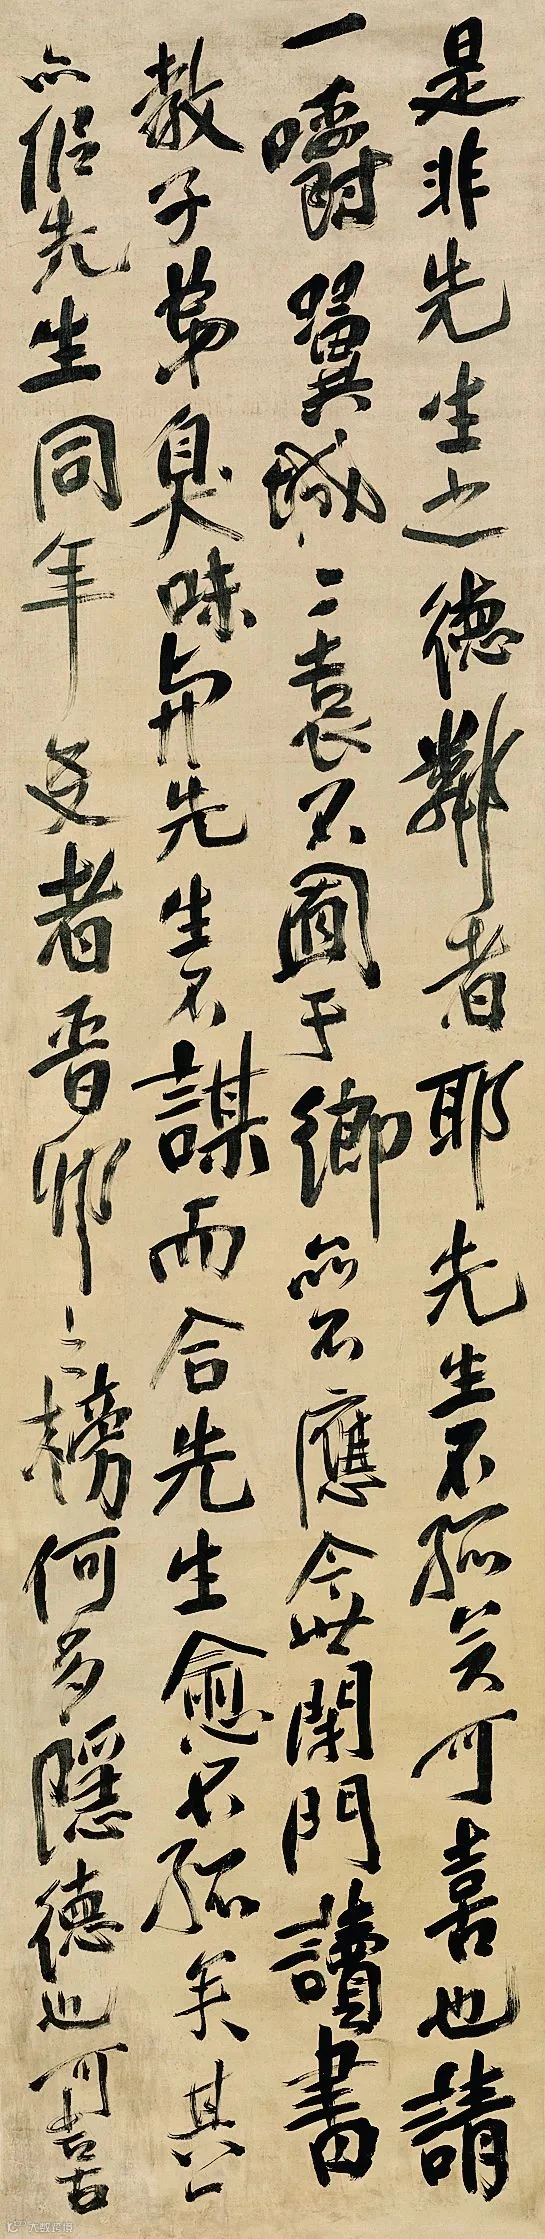 是非先生之德鄰者耶先生不孤矣可喜也請
一嚼翼城二袁不于鄉亦不應今世閉門讀書
教子弟臭味與先生不謀而合先生愈不孤矣其公
亦侶先生同年友者晉卯之榜何多隱德也可喜
大数跨境